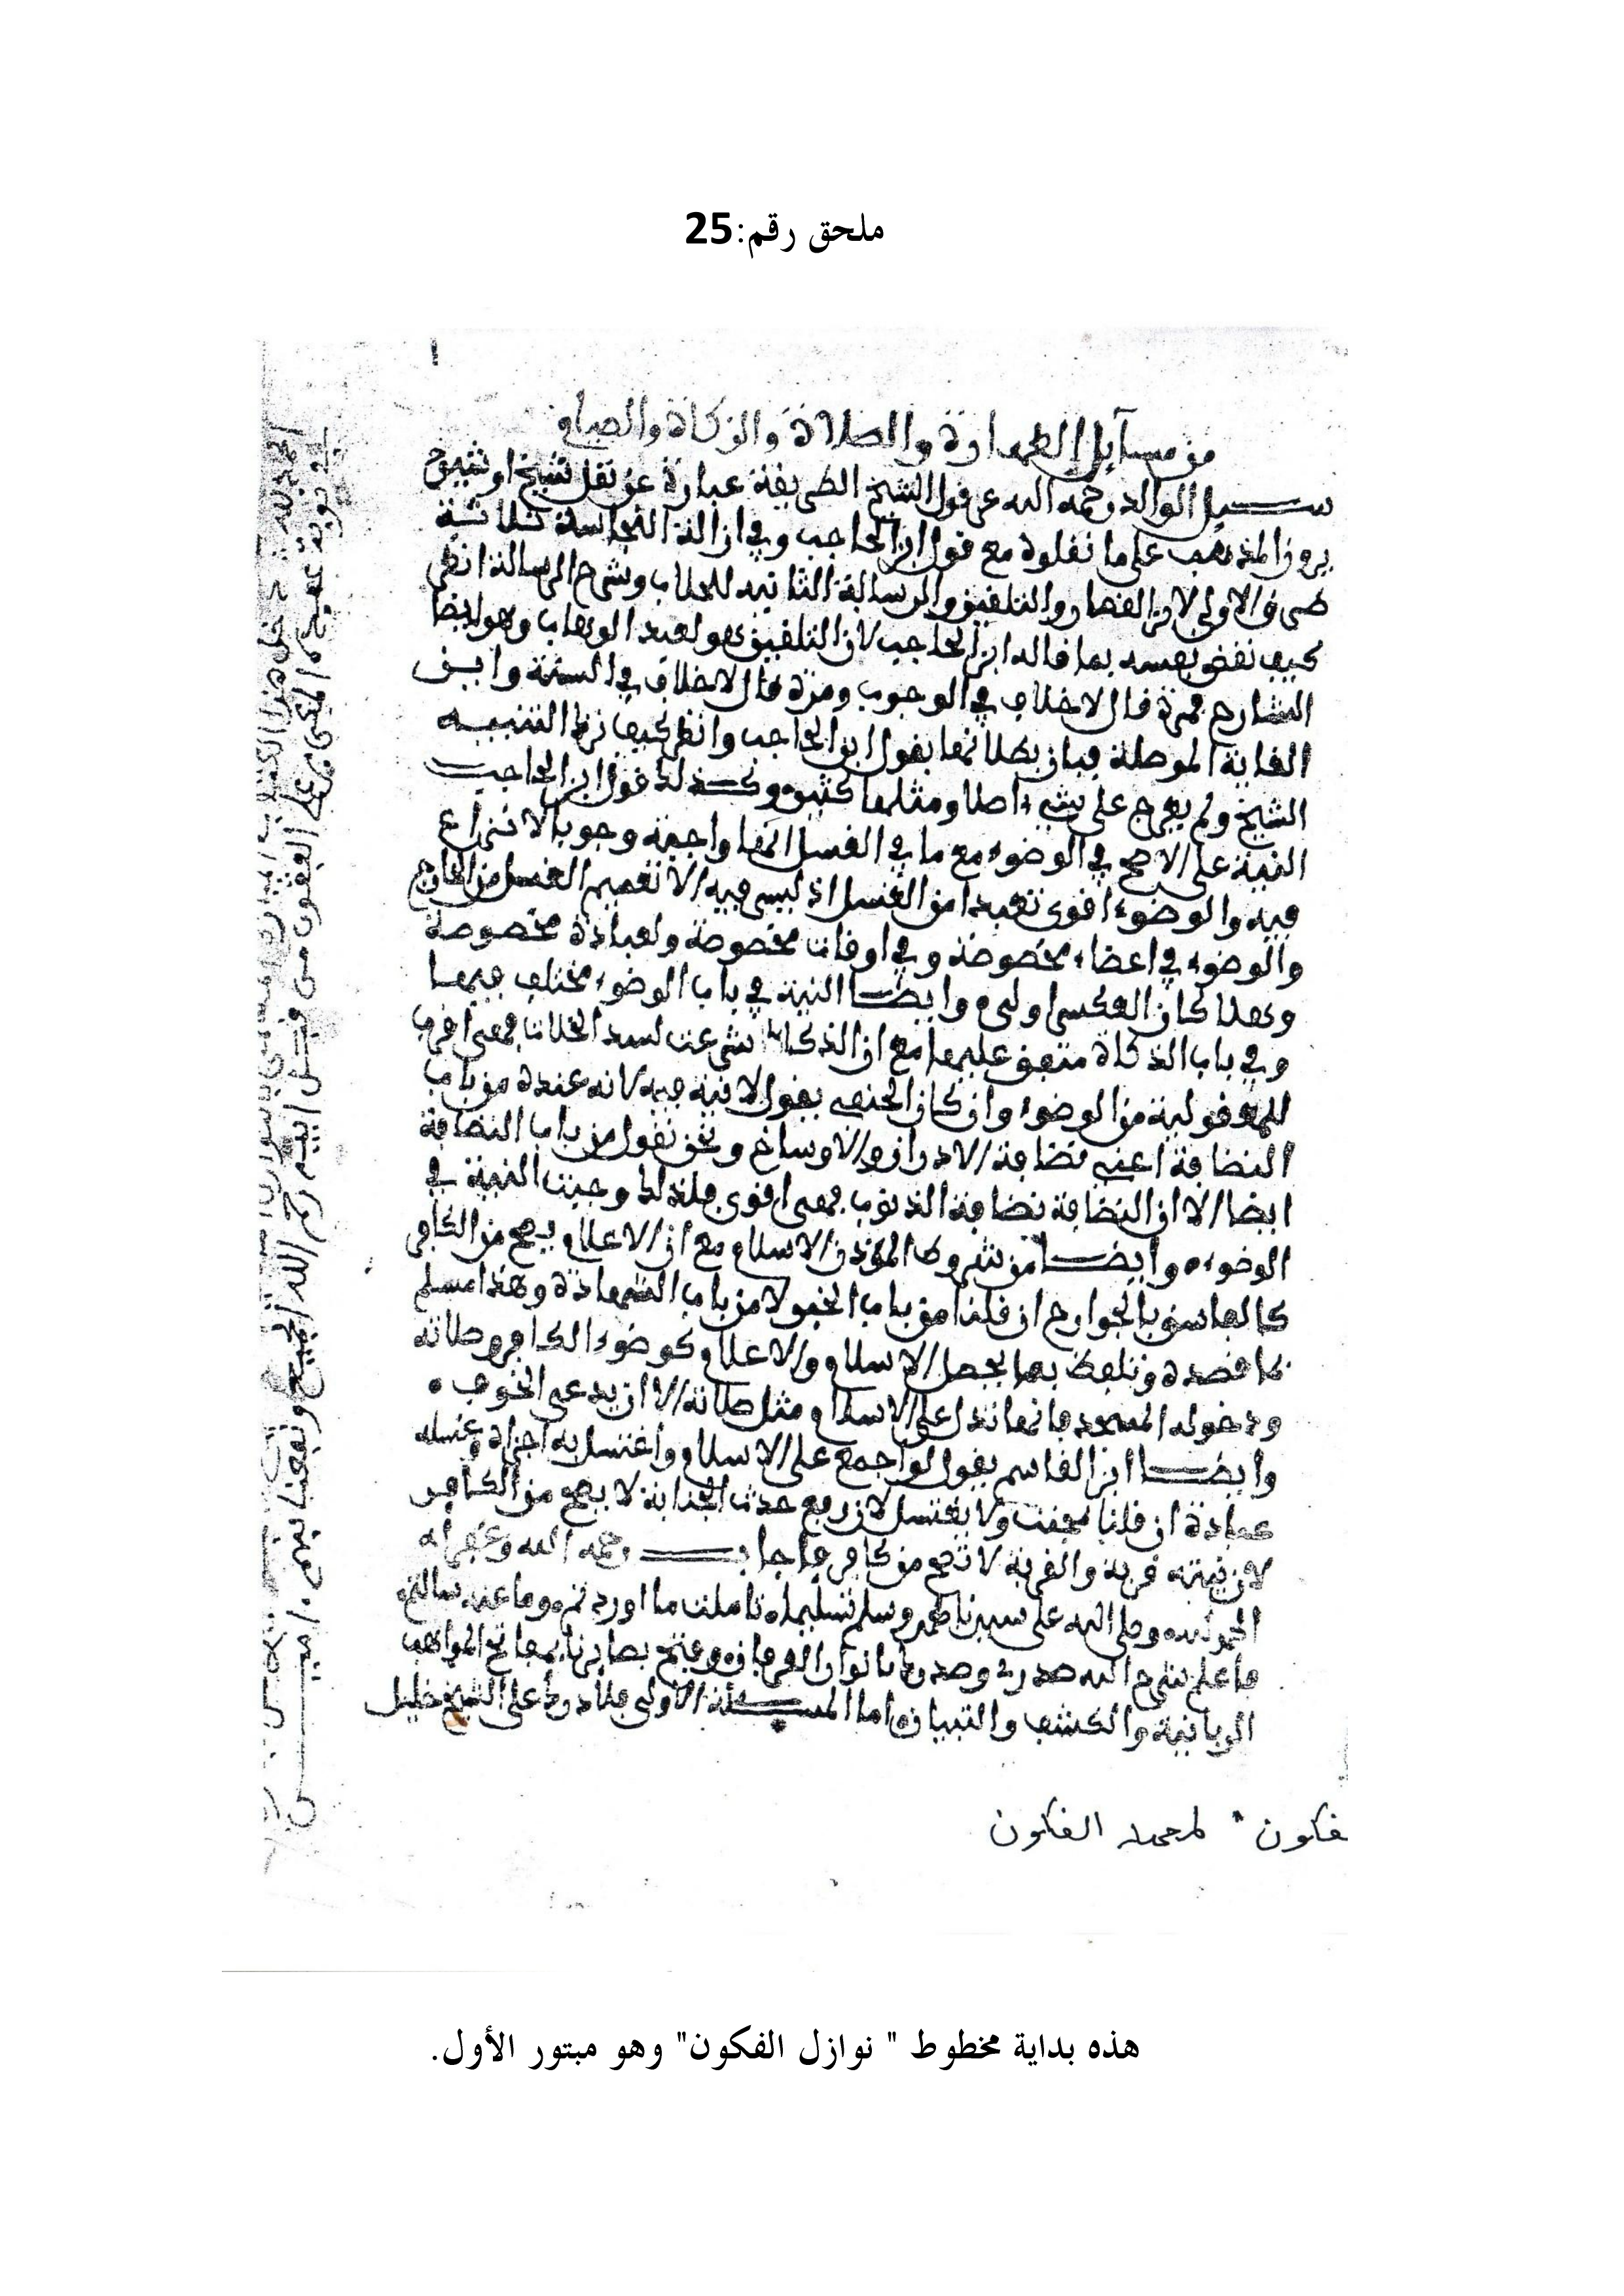 ملحق رقم:25
من مسايل الطهارة والصلاة والزكاة والصيام
سيل الوالد رحمه الله عن قول الشيخ الطريقة عبارة عن نقل شيخ او شيوخ
يرون المذهب على ما نقلوه مع قول ابن الحاجب وفي ازالة النجاسة ثلاثة
طرق الاولى لابن القصار والتلقين والرسالة الثانية للجلاب وشرح الرسالة انظر
كيف نقض نفسه بما قاله ابن الحاجب لان التلقين هو لعبد الوهاب وهو ايضا
الشارح فمرة قال لا خلاف في الوجوب ومرة قال لا خلاف في السنة واين
الغاية الموصلة فبان بطلانها بقول ابن الحاجب وانظر كيف نزه التنبيه
الشيخ ولم يعرج على شيء اصلا ومثلها كثير وكذلك قول ابن الحاجب
النية على الاصح في الوضوء مع ما في الغسل انها واجبة وجوبا لا نزاع
فيه والوضوء اقوى تعبدا من الغسل اذ ليس فيه الا تعميم الغسل من الخارج
والوضوء في اعضاء مخصوصة وفي اوقات مخصوصة ولعبادة مخصوصة
وهلا كان العكس اولى وايضا النية في باب الوضوء مختلف فيها
وفي باب الذكاة متفق عليها مع ان الذكاة شرعت لسد الخلات فهي اقرب
للمعقولية من الوضوء وان كان الحنفي يقول لا نية فيه لانه عنده من باب
النضافة اعني نضافة الادران والاوساخ ونحن نقول من باب النضافة
ايضا الا ان النضافة نضافة الذنوب فهي اقوى فلذلك وجبت النية في
الوضوء وايضا من شروط المؤذن الاسلام مع ان الاعلام يصح من الكافر
كالفاسق بالجوارح ان قلنا من باب الخبر لا من باب الشهادة وهذا مسلم
لما قصده وتلفظ بها يحصل الاسلام والاعلام كوضوء الكافر وصلاته
ودخوله المسجد فانها تدل على الاسلام مثل صلاته الا ان يدعي الخوف
وايضا ابن القاسم يقول لو اجمع على الاسلام واغتسل له اجزاه وغسله
عبادة ان قلنا بجنب ولا يغتسل لان رفع حدث الجنابة لا يصح من الكافر
لان نيته قربة والقربة لا تصح من كافر فاجاب رحمه الله وغفر له
الحمد لله وصلى الله على سيدنا محمد وسلم تسليما تاملت ما اوردتم وما عنه سالتم
فاعلم شرح الله صدري وصدرك بانوار العرفان وفتح بصايرنا بمفاتح المواهب
الربانية والكشف والتبيان اما المسئلة الاولى فلا درك على الشيخ خليل
فكون " لمحمد الفكون
هذه بداية مخطوط " نوازل الفكون" وهو مبتور الأول.